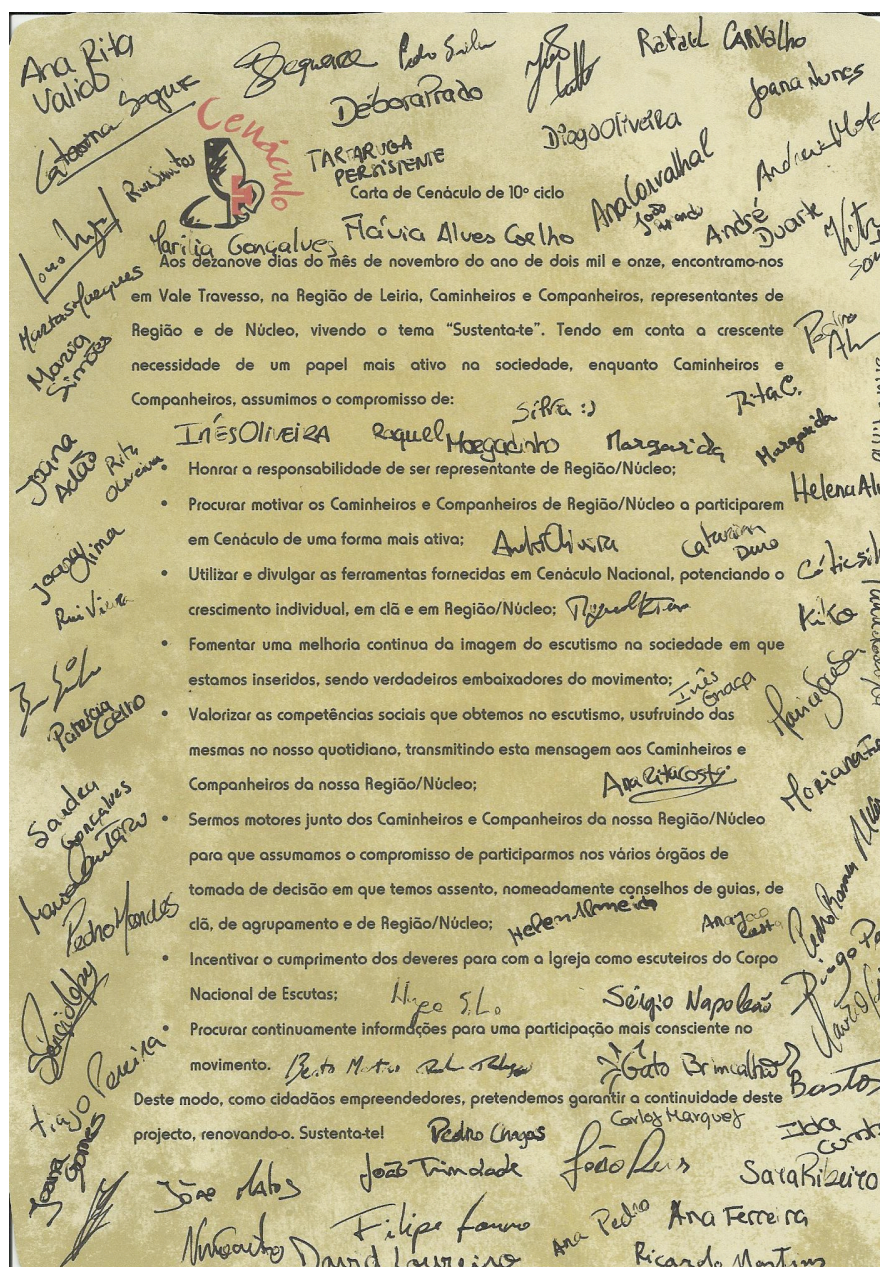 Ana Rita
Valido
Pedro
Rafael Carvalho
Débora Prado
Joana Nunes
Catarina
Diogo Oliveira
Cenáculo
TARTARUGA
PERSISTENTE
Rui Santos
Carta de Cenáculo de 10º ciclo
Ana Carvalhal
João
André
Duarte
Marília Gonçalves
Flávia Alves Coelho
Aos dezanove dias do mês de novembro do ano de dois mil e onze, encontramo-nos
em Vale Travesso, na Região de Leiria, Caminheiros e Companheiros, representantes de
Região e de Núcleo, vivendo o tema “Sustenta-te”. Tendo em conta a crescente
necessidade de um papel mais ativo na sociedade, enquanto Caminheiros e
Companheiros, assumimos o compromisso de:
Marta Marques
Maria
Simões
Sílvia :)
Rita C.
Inês Oliveira
Raquel Morgadinho
Margarida
Margarida
Joana
Adão
Rita
Oliveira
• Honrar a responsabilidade de ser representante de Região/Núcleo;
• Procurar motivar os Caminheiros e Companheiros de Região/Núcleo a participarem
em Cenáculo de uma forma mais ativa;
Helena
André Oliveira
Catarina
Joana Lima
• Utilizar e divulgar as ferramentas fornecidas em Cenáculo Nacional, potenciando o
crescimento individual, em clã e em Região/Núcleo;
Rui Vieira
Kiko
• Fomentar uma melhoria continua da imagem do escutismo na sociedade em que
estamos inseridos, sendo verdadeiros embaixadores do movimento;
Inês
Graça
Patrícia
Coelho
• Valorizar as competências sociais que obtemos no escutismo, usufruindo das
mesmas no nosso quotidiano, transmitindo esta mensagem aos Caminheiros e
Companheiros da nossa Região/Núcleo;
Ana Rita Costa
Mariana
Sandra
Gonçalves
• Sermos motores junto dos Caminheiros e Companheiros da nossa Região/Núcleo
para que assumamos o compromisso de participarmos nos vários órgãos de
tomada de decisão em que temos assento, nomeadamente conselhos de guias, de
clã, de agrupamento e de Região/Núcleo;
Pedro Mendes
Helena Almeida
Ana João
Costa
Pedro
• Incentivar o cumprimento dos deveres para com a Igreja como escuteiros do Corpo
Nacional de Escutas;
Sérgio Napoleão
• Procurar continuamente informações para uma participação mais consciente no
movimento.
Gato Brincalhão
Tiago Pereira
Bastos
Deste modo, como cidadãos empreendedores, pretendemos garantir a continuidade deste
projecto, renovando-o. Sustenta-te!
Pedro Chagas
Carlos Marques
Ilda
Joana
Gomes
João Trindade
João Reis
Sara Ribeiro
Matos
Filipe
Ana Pedro
Ana Ferreira
David Loureiro
Ricardo Martins